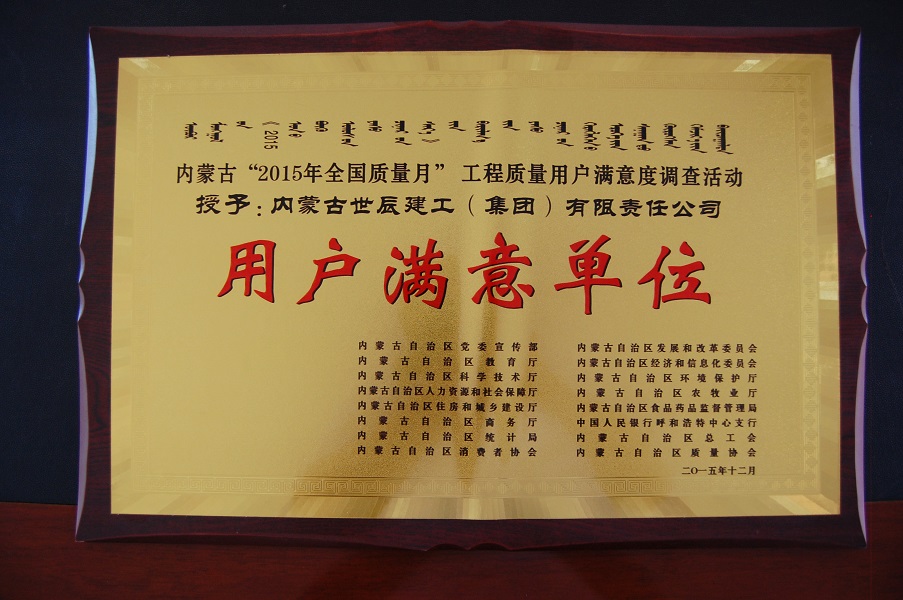 《2015
内蒙古“2015年全国质量月” 工程质量用户满意度调查活动
授予：内蒙古世辰建工（集团）有限责任公司
用户满意单位
内蒙古自治区党委宣传部
内蒙古自治区教育厅
内蒙古自治区科学技术厅
内蒙古自治区人力资源和社会保障厅
内蒙古自治区住房和城乡建设厅
内蒙古自治区商务厅
内蒙古自治区统计局
内蒙古自治区消费者协会
内蒙古自治区发展和改革委员会
内蒙古自治区经济和信息化委员会
内蒙古自治区环境保护厅
内蒙古自治区农牧业厅
内蒙古自治区食品药品监督管理局
中国人民银行呼和浩特中心支行
内蒙古自治区总工会
内蒙古自治区质量协会
二〇一五年十二月